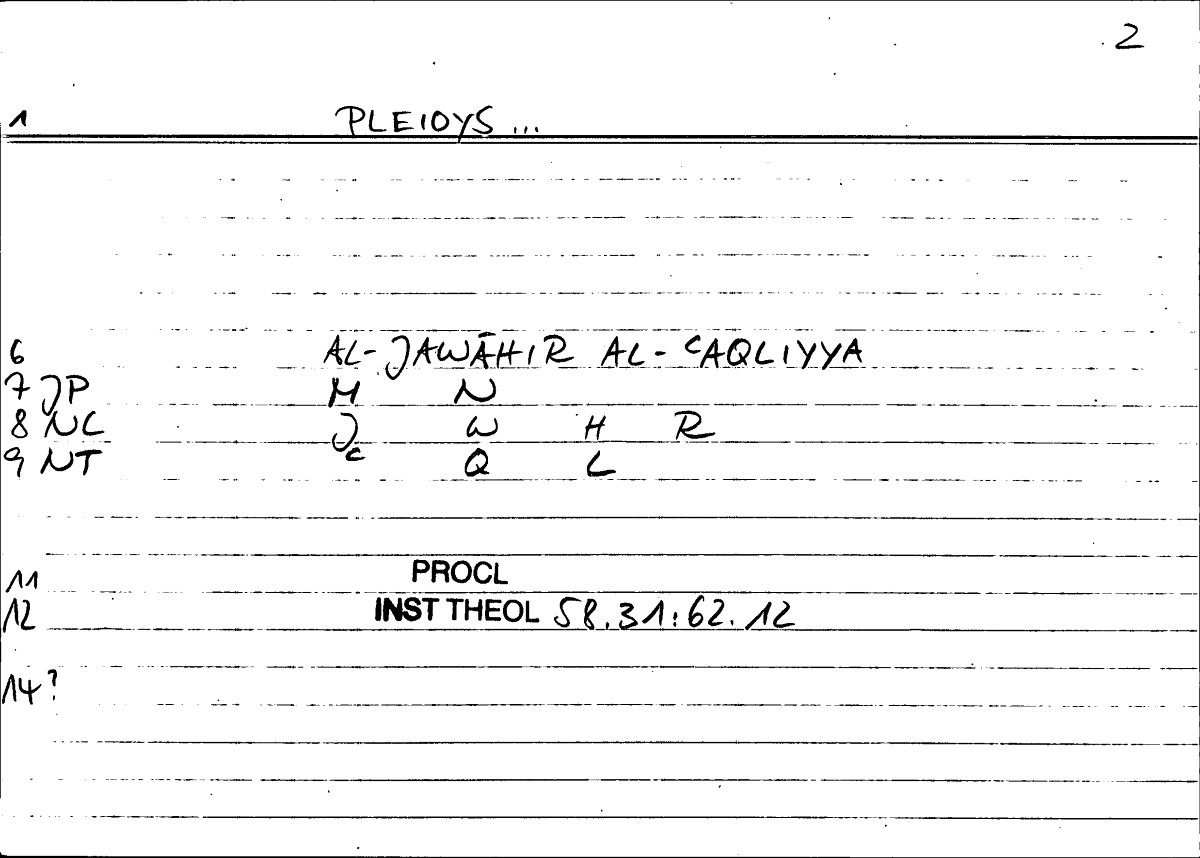 2
1 PLEIOYS ...
6 AL-JAWĀHIR AL-ᶜAQLIYYA
7 JP M N
8 NC J W H R
9 NT ᶜ Q L
11 PROCL
12 INST THEOL 58.31:62.12
14?